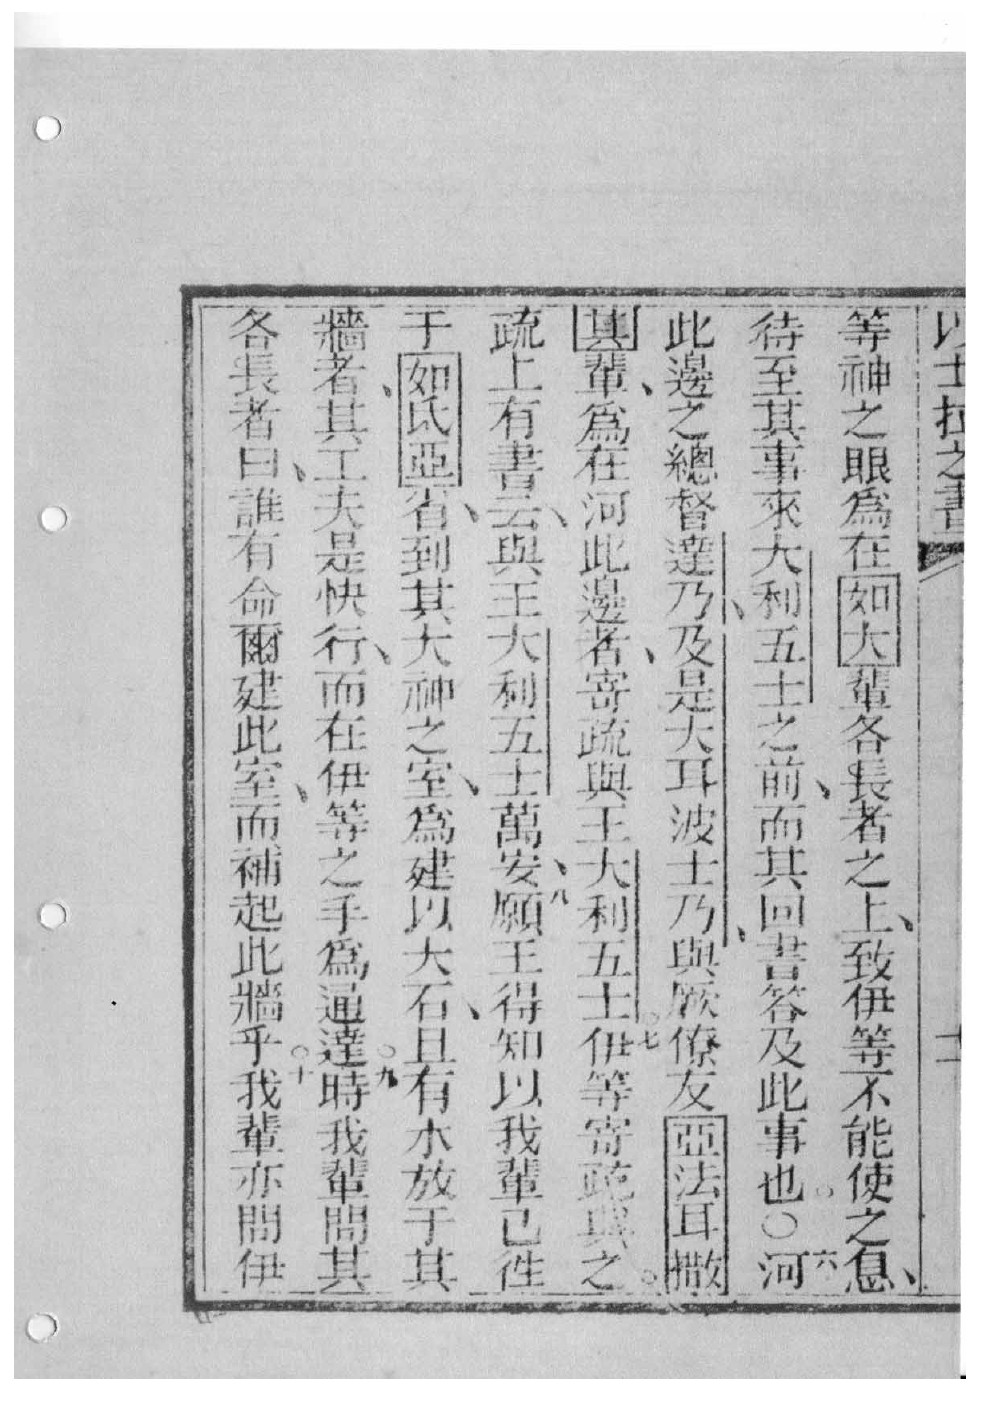 以士拉之書
等神之眼爲在如大輩各長者之上、致伊等不能使之息、
待至其事來大利五士之前、而其回書答及此事也。〇六河
此邊之總督達乃、及是大耳波士乃、與厥僚友亞法耳撒
其輩、爲在河此邊者、寄疏與王大利五士。七伊等寄疏與之。
疏上有書云、與王大利五士萬安、八願王得知以我輩已徃
于如氐亞省、到其大神之室、爲建以大石、且有木放于其
牆者、其工夫是快行、而在伊等之手爲通達。九時我輩問其
各長者曰、誰有命爾建此室、而補起此牆乎。十我輩亦問伊